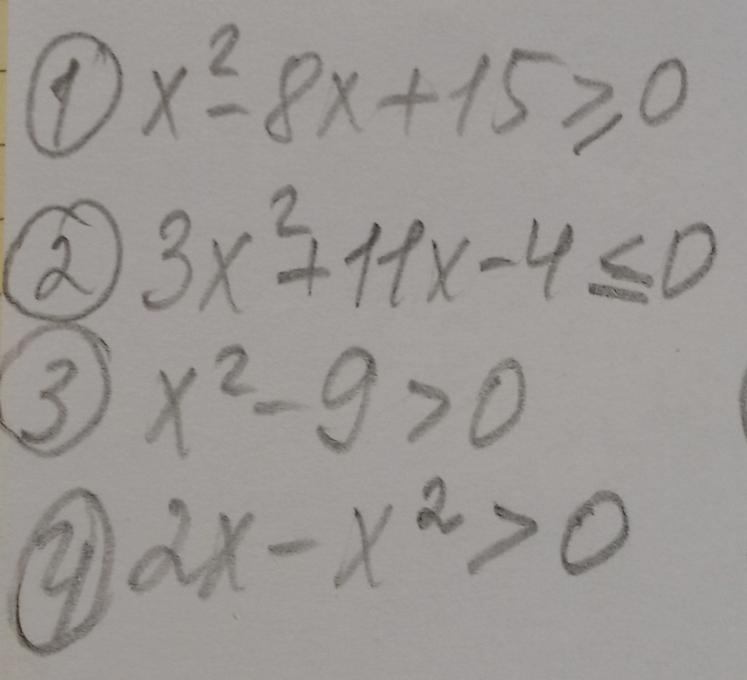 ① x² - 8x + 15 ≥ 0
② 3x² + 11x - 4 ≤ 0
③ x² - 9 > 0
④ 2x - x² > 0